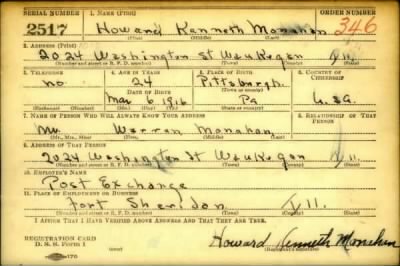 SERIAL NUMBER 1. NAME (Print) ORDER NUMBER
2517 Howard Kenneth Monahan 346
(First) (Middle) (Last)
2. ADDRESS (Print)
2024 Washington St Waukegan Ill.
(Number and street or R. F. D. number) (Town) (County) (State)
3. TELEPHONE 4. AGE IN YEARS 5. PLACE OF BIRTH 6. COUNTRY OF CITIZENSHIP
no. 24 Pittsburgh.
DATE OF BIRTH (Town or county)
Mar 6 1916 Pa U.S.A.
(Exchange) (Number) (Mo.) (Day) (Yr.) (State or country)
7. NAME OF PERSON WHO WILL ALWAYS KNOW YOUR ADDRESS 8. RELATIONSHIP OF THAT PERSON
Mr. Warren Monahan
(Mr., Mrs., Miss) (First) (Middle) (Last)
9. ADDRESS OF THAT PERSON
2024 Washington St Waukegan Ill.
(Number and street or R. F. D. number) (Town) (County) (State)
10. EMPLOYER'S NAME
Post Exchange
11. PLACE OF EMPLOYMENT OR BUSINESS
Fort Sheridan Ill.
(Number and street or R. F. D. number) (Town) (County) (State)
I AFFIRM THAT I HAVE VERIFIED ABOVE ANSWERS AND THAT THEY ARE TRUE.
REGISTRATION CARD
D. S. S. Form 1 Howard Kenneth Monahan